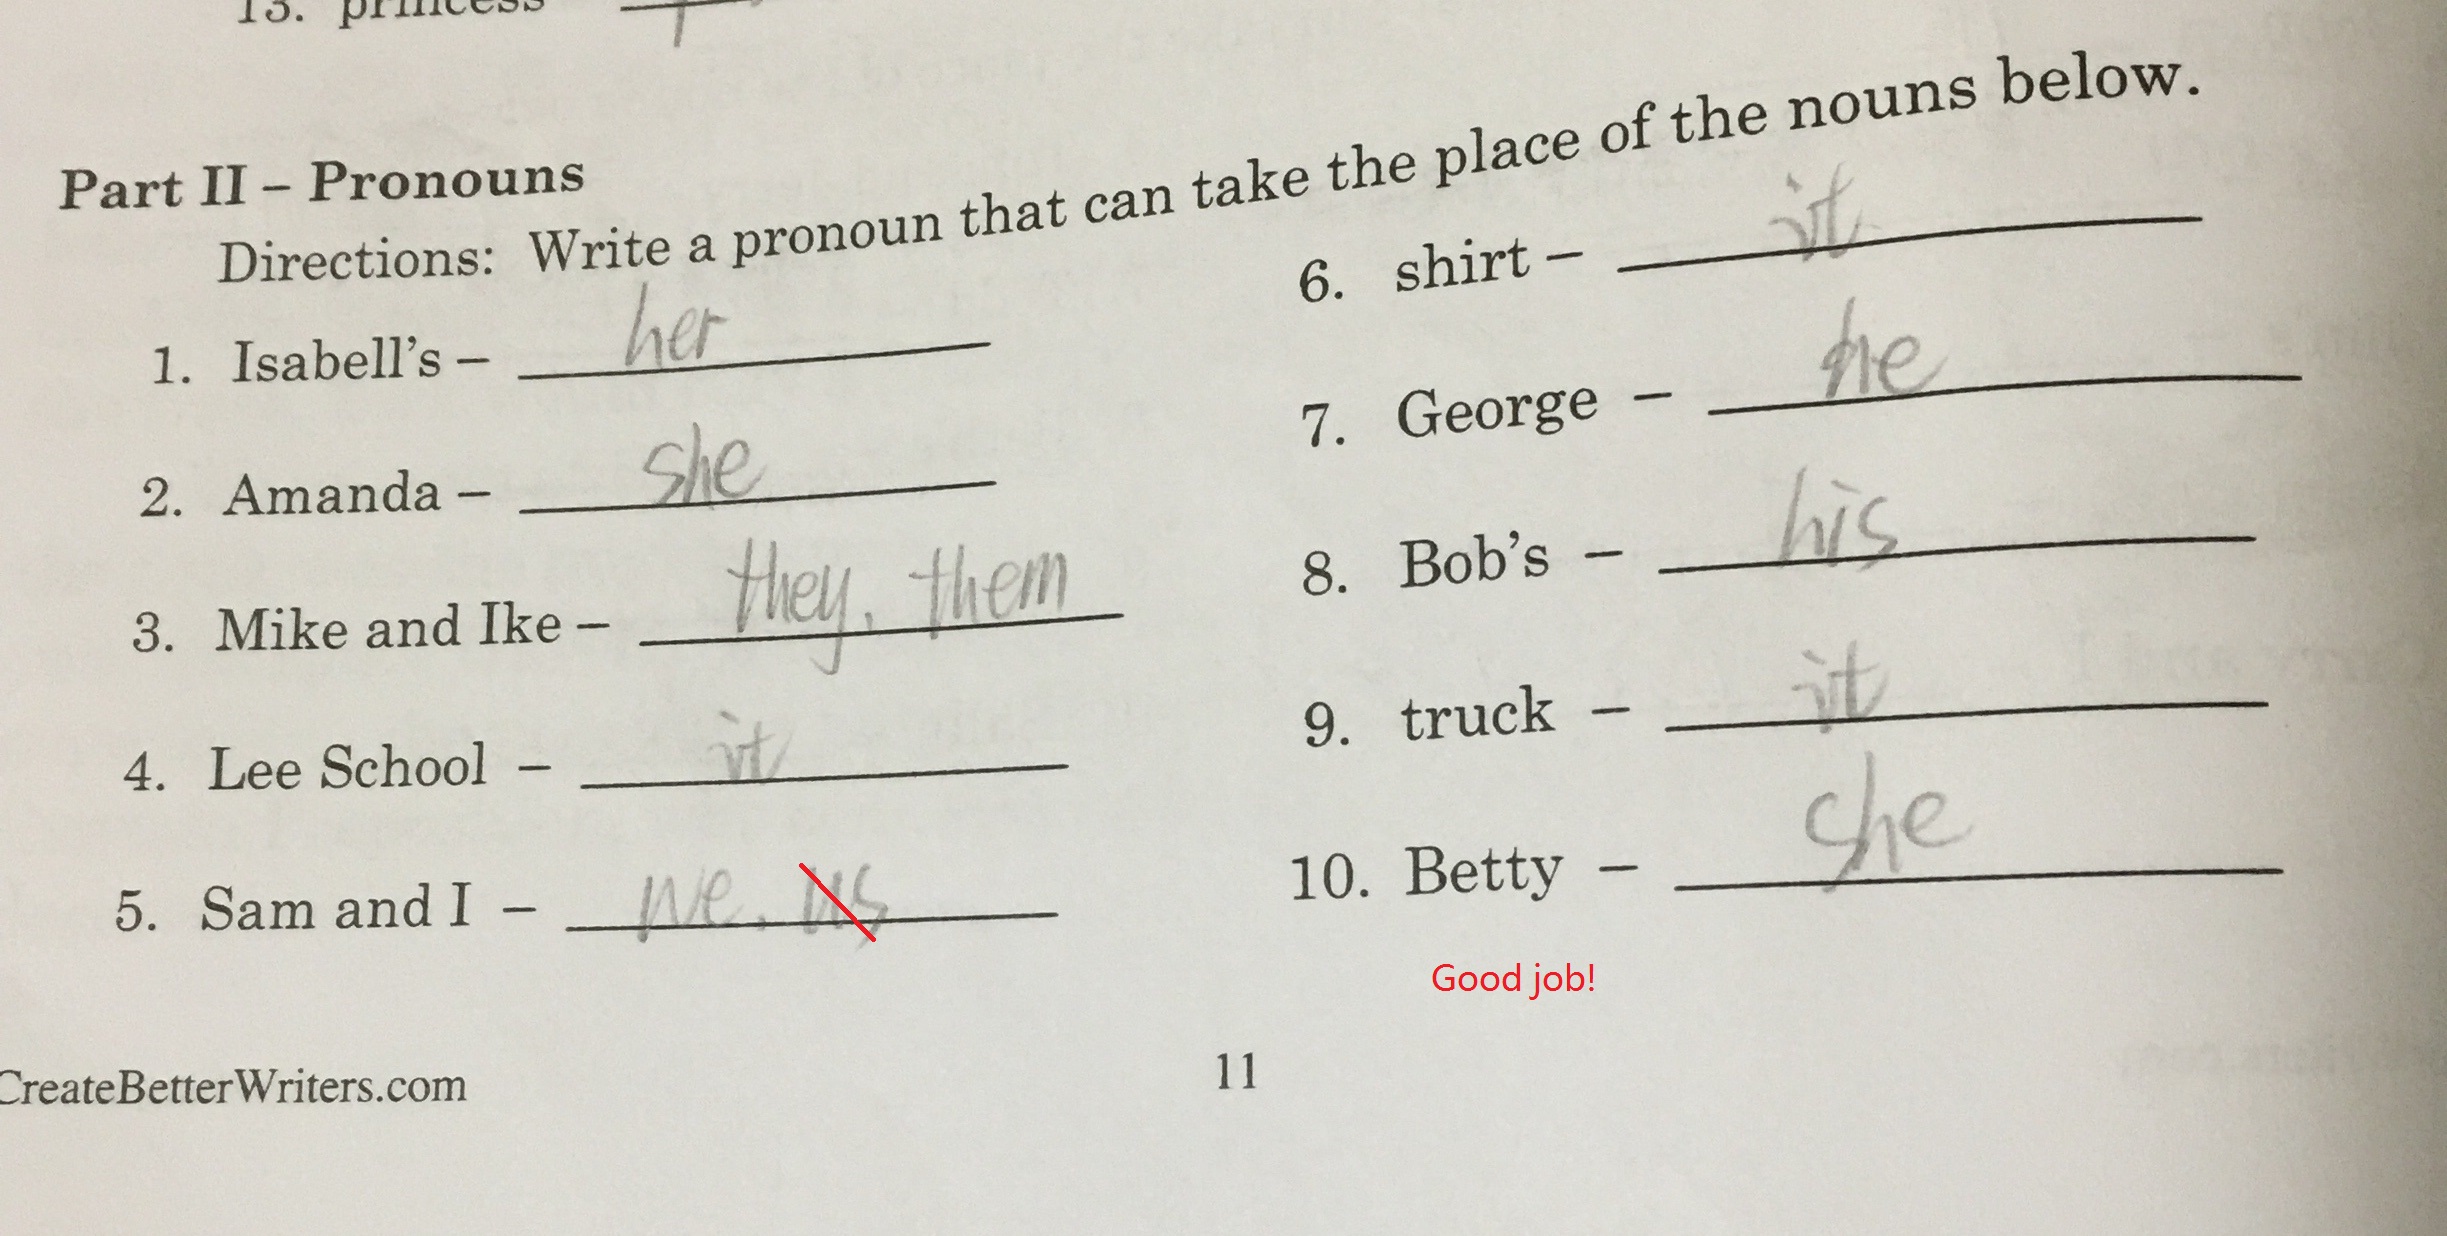 13. princess
Part II – Pronouns
Directions: Write a pronoun that can take the place of the nouns below.
1. Isabell's – her
2. Amanda – she
3. Mike and Ike – they, them
4. Lee School – it
5. Sam and I – we, us
6. shirt – it
7. George – he
8. Bob's – his
9. truck – it
10. Betty – she
Good job!
CreateBetterWriters.com
11